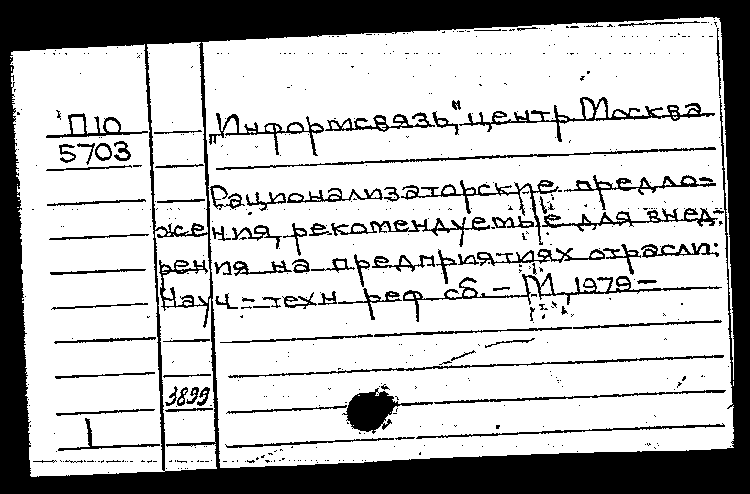 П10
5703
„Информсвязь," центр Москва
Рационализаторские предло=
жения, рекомендуемые для внед-
рения на предприятиях отрасли:
Науч.-техн. реф. сб. - М., 1979 -
3899
1